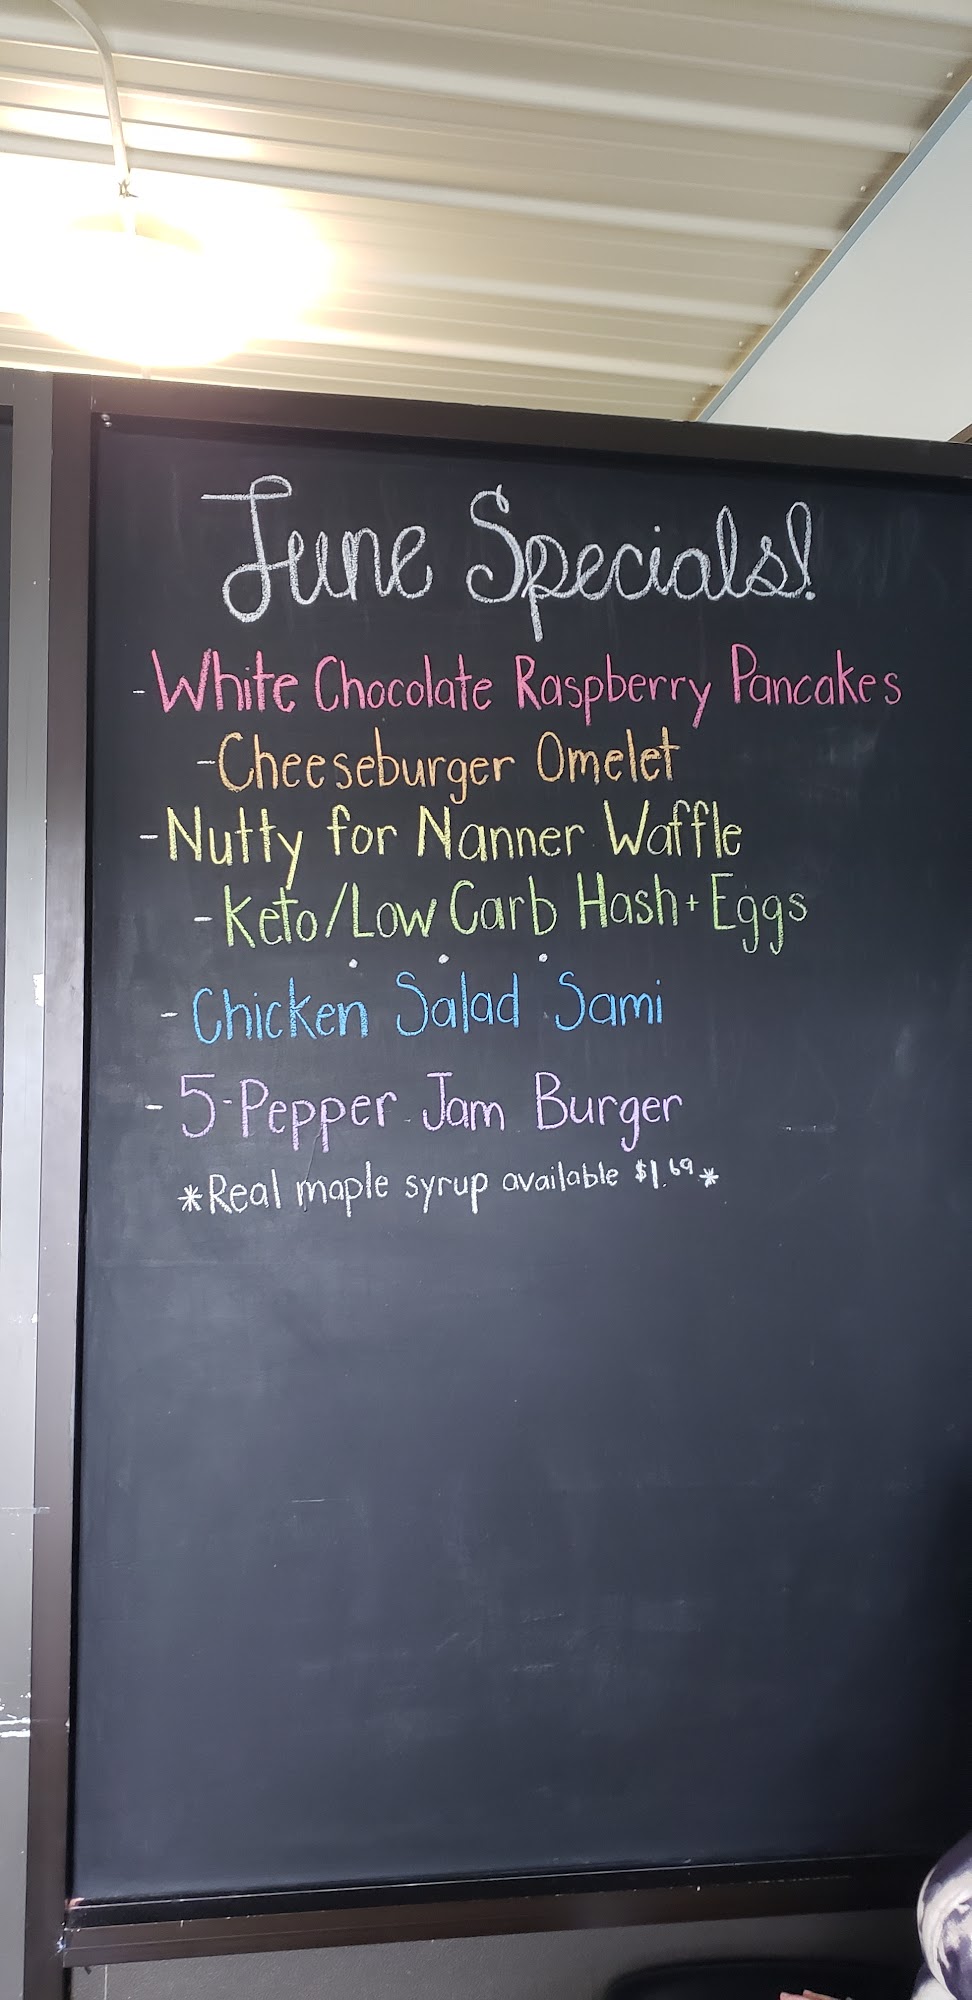 June Specials!
- White Chocolate Raspberry Pancakes
- Cheeseburger Omelet
- Nutty for Nanner Waffle
- Keto/Low Carb Hash + Eggs
. . .
- Chicken Salad Sami
- 5-Pepper Jam Burger
*Real maple syrup available $1.69*